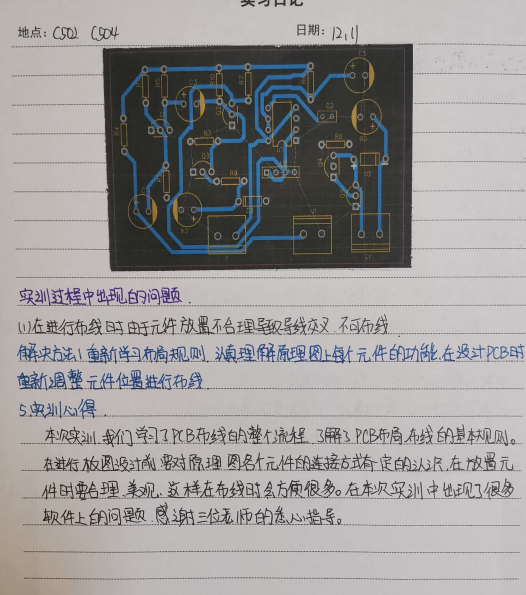 实习日记
地点：C502 C504 日期：12.11
实训过程中出现的问题.
(1)在进行布线时由于元件放置不合理导致导线交叉 不可布线.
解决方法:1重新学习布局规则，认真理解原理图上每个元件的功能.在设计PCB时
重新调整元件位置进行布线.
5.实训心得.
本次实训,我们学习了PCB布线的整个流程.了解了PCB布局,布线的基本规则。
在进行放图设计前要对原理图各个元件的连接方式有定的认识.在放置元
件时要合理.美观.这样在布线时会方便很多。在本次实训中出现了很多
软件上的问题.感谢三位老师的悉心指导。